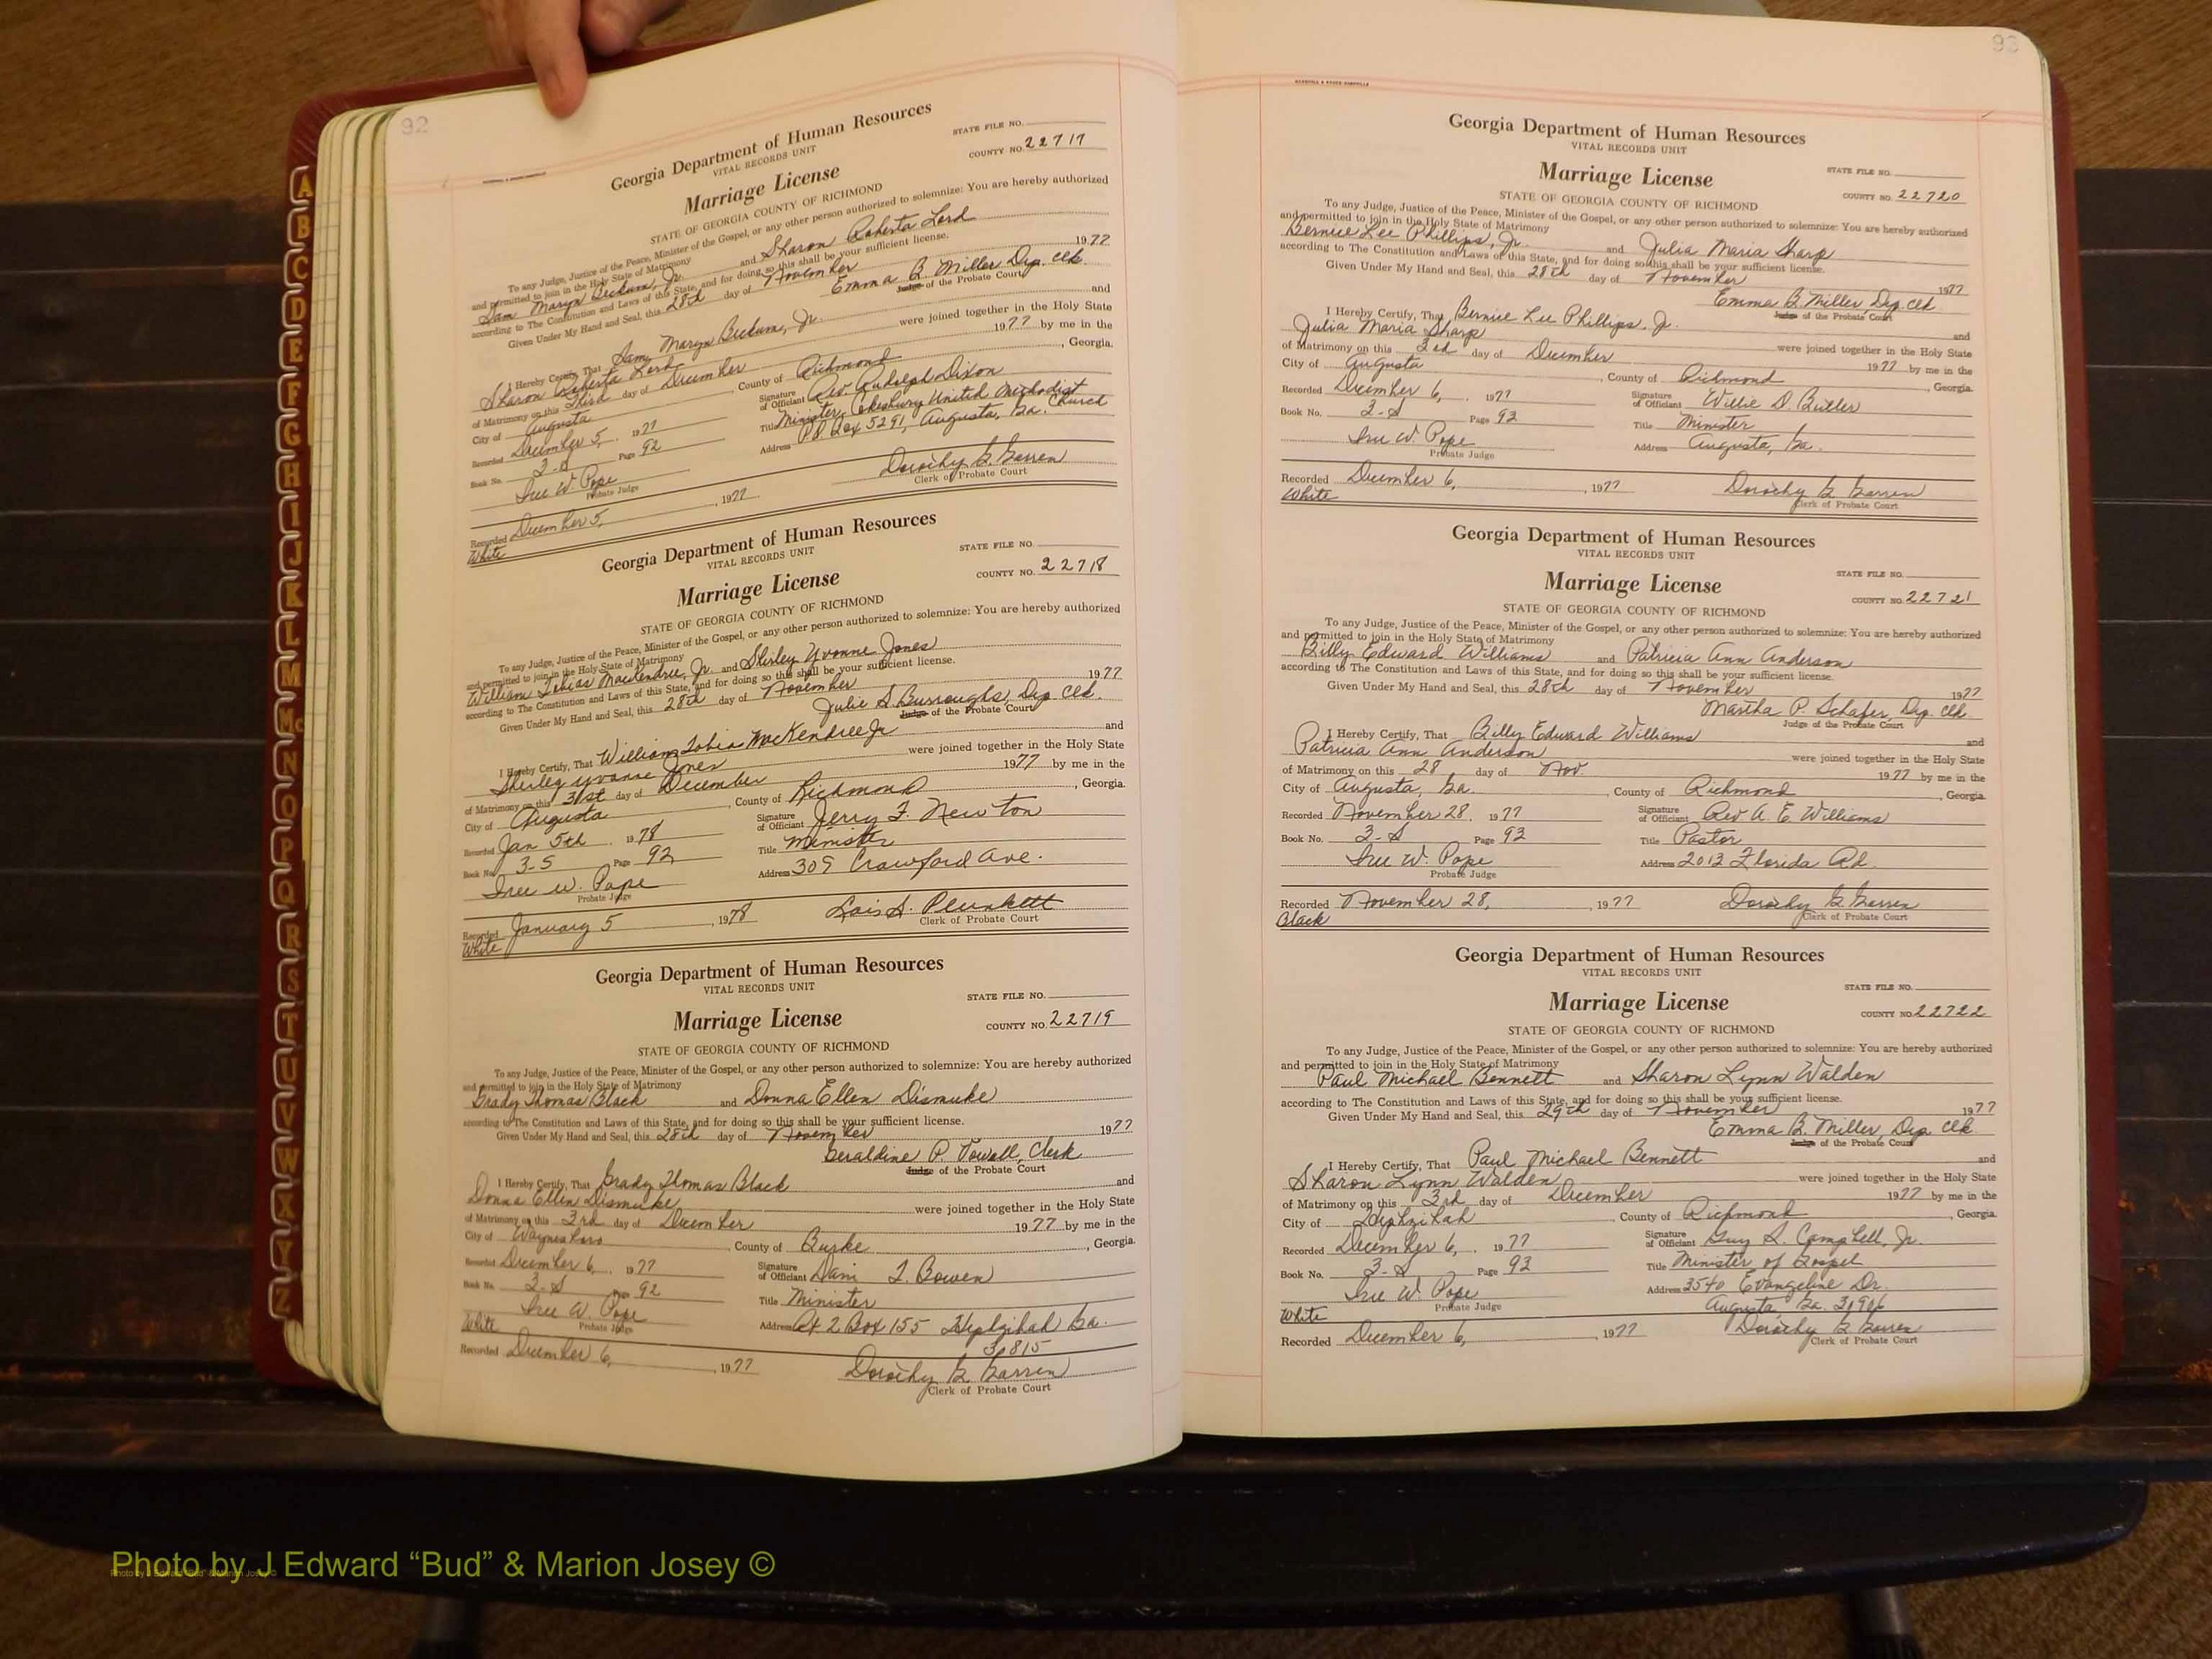 92
Georgia Department of Human Resources
VITAL RECORDS UNIT
STATE FILE NO.
Marriage License
COUNTY NO. 22717
STATE OF GEORGIA COUNTY OF RICHMOND
To any Judge, Justice of the Peace, Minister of the Gospel, or any other person authorized to solemnize: You are hereby authorized
and permitted to join in the Holy State of Matrimony
Sam Maryn Beckum, Jr. and Sharon Roberta Lord
according to The Constitution and Laws of this State, and for doing so this shall be your sufficient license.
Given Under My Hand and Seal, this 28th day of November 1977
Emma B. Miller Dep. Clk.
Judge of the Probate Court
I Hereby Certify, That Sam Maryn Beckum, Jr. and
Sharon Roberta Lord were joined together in the Holy State
of Matrimony on this Third day of December 1977 by me in the
City of Augusta, County of Richmond, Georgia.
Recorded December 5, 1977 Signature of Officiant Rev Rudolph Dixon
Book No. 3-S Page 92 Title Minister, Cokesbury United Methodist Church
Address P.O. Box 5291, Augusta, Ga.
Iree W. Pope
Probate Judge
Dorothy G. Garren
Clerk of Probate Court
Recorded December 5, 1977
White
Georgia Department of Human Resources
VITAL RECORDS UNIT
STATE FILE NO.
Marriage License
COUNTY NO. 22718
STATE OF GEORGIA COUNTY OF RICHMOND
To any Judge, Justice of the Peace, Minister of the Gospel, or any other person authorized to solemnize: You are hereby authorized
and permitted to join in the Holy State of Matrimony
William Tobias MacKendree, Jr. and Shirley Yvonne Jones
according to The Constitution and Laws of this State, and for doing so this shall be your sufficient license.
Given Under My Hand and Seal, this 28th day of November 1977
Julie S. Burroughs, Dep. Clk.
Judge of the Probate Court
I Hereby Certify, That William Tobia MacKendree Jr and
Shirley Yvonne Jones were joined together in the Holy State
of Matrimony on this 31st day of December 1977 by me in the
City of Augusta, County of Richmond, Georgia.
Recorded Jan 5th, 1978 Signature of Officiant Jerry F. Newton
Book No. 3-S Page 92 Title Minister
Address 309 Crawford Ave.
Iree W. Pope
Probate Judge
Lois S. Plunkett
Clerk of Probate Court
Recorded January 5, 1978
White
Georgia Department of Human Resources
VITAL RECORDS UNIT
STATE FILE NO.
Marriage License
COUNTY NO. 22719
STATE OF GEORGIA COUNTY OF RICHMOND
To any Judge, Justice of the Peace, Minister of the Gospel, or any other person authorized to solemnize: You are hereby authorized
and permitted to join in the Holy State of Matrimony
Grady Thomas Black and Donna Ellen Dismuke
according to The Constitution and Laws of this State, and for doing so this shall be your sufficient license.
Given Under My Hand and Seal, this 28th day of November 1977
Geraldine P. Powell, Clerk
Judge of the Probate Court
I Hereby Certify, That Grady Thomas Black and
Donna Ellen Dismuke were joined together in the Holy State
of Matrimony on this 3rd day of December 1977 by me in the
City of Waynesboro, County of Burke, Georgia.
Recorded December 6, 1977 Signature of Officiant T. Bowen
Book No. 3-S Page 92 Title Minister
Iree W. Pope
White Probate Judge Address Rt 2 Box 155 Hephzibah Ga.
30815
Recorded December 6, 1977 Dorothy G Garren
Clerk of Probate Court
93
Georgia Department of Human Resources
VITAL RECORDS UNIT
STATE FILE NO.
Marriage License
COUNTY NO. 22720
STATE OF GEORGIA COUNTY OF RICHMOND
To any Judge, Justice of the Peace, Minister of the Gospel, or any other person authorized to solemnize: You are hereby authorized
and permitted to join in the Holy State of Matrimony
Bernice Lee Phillips, Jr. and Julia Maria Sharp
according to The Constitution and Laws of this State, and for doing so this shall be your sufficient license.
Given Under My Hand and Seal, this 28th day of November 1977
Emma B. Miller Dep. Clk.
Judge of the Probate Court
I Hereby Certify, That Bernice Lee Phillips, Jr. and
Julia Maria Sharp were joined together in the Holy State
of Matrimony on this 3rd day of December 1977 by me in the
City of Augusta, County of Richmond, Georgia.
Recorded December 6, 1977 Signature of Officiant Willie D. Butler
Book No. 3-S Page 93 Title Minister
Iree W. Pope
Probate Judge Address Augusta, Ga.
Recorded December 6, 1977 Dorothy G Garren
White Clerk of Probate Court
Georgia Department of Human Resources
VITAL RECORDS UNIT
STATE FILE NO.
Marriage License
COUNTY NO. 22721
STATE OF GEORGIA COUNTY OF RICHMOND
To any Judge, Justice of the Peace, Minister of the Gospel, or any other person authorized to solemnize: You are hereby authorized
and permitted to join in the Holy State of Matrimony
Billy Edward Williams and Patricia Ann Anderson
according to The Constitution and Laws of this State, and for doing so this shall be your sufficient license.
Given Under My Hand and Seal, this 28th day of November 1977
Martha P. Schafer, Dep. Clk.
Judge of the Probate Court
I Hereby Certify, That Billy Edward Williams and
Patricia Ann Anderson were joined together in the Holy State
of Matrimony on this 28 day of Nov. 1977 by me in the
City of Augusta, Ga., County of Richmond, Georgia.
Recorded November 28, 1977 Signature of Officiant Rev A. E. Williams
Book No. 3-S Page 93 Title Pastor
Iree W. Pope Address 2013 Florida Rd.
Probate Judge
Recorded November 28, 1977 Dorothy G Garren
Black Clerk of Probate Court
Georgia Department of Human Resources
VITAL RECORDS UNIT
STATE FILE NO.
Marriage License
COUNTY NO. 22722
STATE OF GEORGIA COUNTY OF RICHMOND
To any Judge, Justice of the Peace, Minister of the Gospel, or any other person authorized to solemnize: You are hereby authorized
and permitted to join in the Holy State of Matrimony
Paul Michael Bennett and Sharon Lynn Walden
according to The Constitution and Laws of this State, and for doing so this shall be your sufficient license.
Given Under My Hand and Seal, this 29th day of November 1977
Emma B. Miller, Dep. Clk
Judge of the Probate Court
I Hereby Certify, That Paul Michael Bennett and
Sharon Lynn Walden were joined together in the Holy State
of Matrimony on this 3rd day of December 1977 by me in the
City of Hephzibah, County of Richmond, Georgia.
Recorded December 6, 1977 Signature of Officiant Guy S. Campbell, Jr.
Book No. 3-S Page 93 Title Minister of Gospel
Iree W. Pope Address 3540 Evangeline Dr.
White Probate Judge Augusta, Ga. 30906
Recorded December 6, 1977 Dorothy G Garren
Clerk of Probate Court
A
B
C
D
E
F
G
H
I
J
K
L
M
Mc
N
O
P
Q
R
S
T
U
V
W
X
Y
Z
Photo by J Edward “Bud” & Marion Josey ©
Photo by J Edward "Bud" & Marion Josey ©